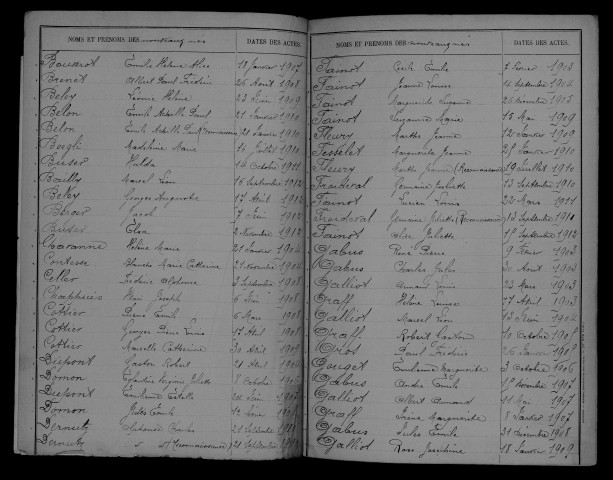 NOMS ET PRÉNOMS DES nouveaux nés DATES DES ACTES.
Émile Hélène Alice 18 Janvier 1907
Benoit Albert Paul Frédéric 26 Août 1908
Beley Léonie Hélène 23 Juin 1909
Belon Émile Achille Paul 21 Janvier 1910
Belon Émile Achille Paul (Reconnaissance) Janvier 1910
Madeleine Marie 14 Juillet 1910
Hulda 14 Octobre 1911
Bouilly Marcel Léon 16 Septembre 1912
Beley Georges Auguste 17 Août 1912
Berger Jacob Juin 1912
Elsa 2 Novembre 1912
Caranne Hélène Marie 21 Janvier 1904
Contesse Blanche Marie Catherine 21 Novembre 1904
Celler Frédéric 3 Septembre 1908
Henri Joseph 6 Juin
Cottier Pierre Émile 6 Mars 1908
Cottier Georges Pierre Louis 17 Août 1908
Cottier Marcelle Catherine 30 Août 1909
Dupont Gaston Robert 21 Août
Domon Juliette 8 Octobre
Dupont Estelle Juin 1907
Domon Jules Émile Juin
Dernety 21 Septembre
Dernety (Reconnaissance) 21 Septembre
NOMS ET PRÉNOMS DES nouveaux nés DATES DES ACTES.
Fainot Cécile Émilie 7 Février 1903
Fainot Jeanne Louise 14 Septembre 1904
Fainot Marguerite Suzanne 26 Novembre 1903
Fainot Suzanne Marie 15 Mai 1909
Fleury Marthe Jeanne 12 Janvier 1909
Fesselet Marguerite Jeanne 25 Février 1910
Fleury Marthe Jeanne (Reconnaissance) 19 Juillet 1910
Frondeval Germaine Juliette 13 Septembre 1910
Fainot Lucien Louis 22 Mars 1911
Frondeval Germaine Juliette (Reconnaissance) 13 Septembre 1910
Fainot Alice Juliette 1er Septembre 1912
Gabus René Pierre 9 Février 1903
Gabus Charles Jules 30 Août 1903
Galliot Armand Louis 22 Mars 1903
Graff Hélène Louise 17 Avril 1903
Galliot Marcel Léon 13 Juin 1904
Graff Robert Gaston 10 Octobre 1905
Gros Paul Frédéric 26 Janvier
Gouget Émilienne Marguerite 3 Octobre 1906
Gabus André Émile 1er Novembre 1907
Galliot Albert Armand 11 Mai 1907
Graff Irène Marguerite 8 Janvier 1907
Gabus Jules Émile 31 Décembre 1908
Galliot Rose Joséphine 18 Janvier 1909